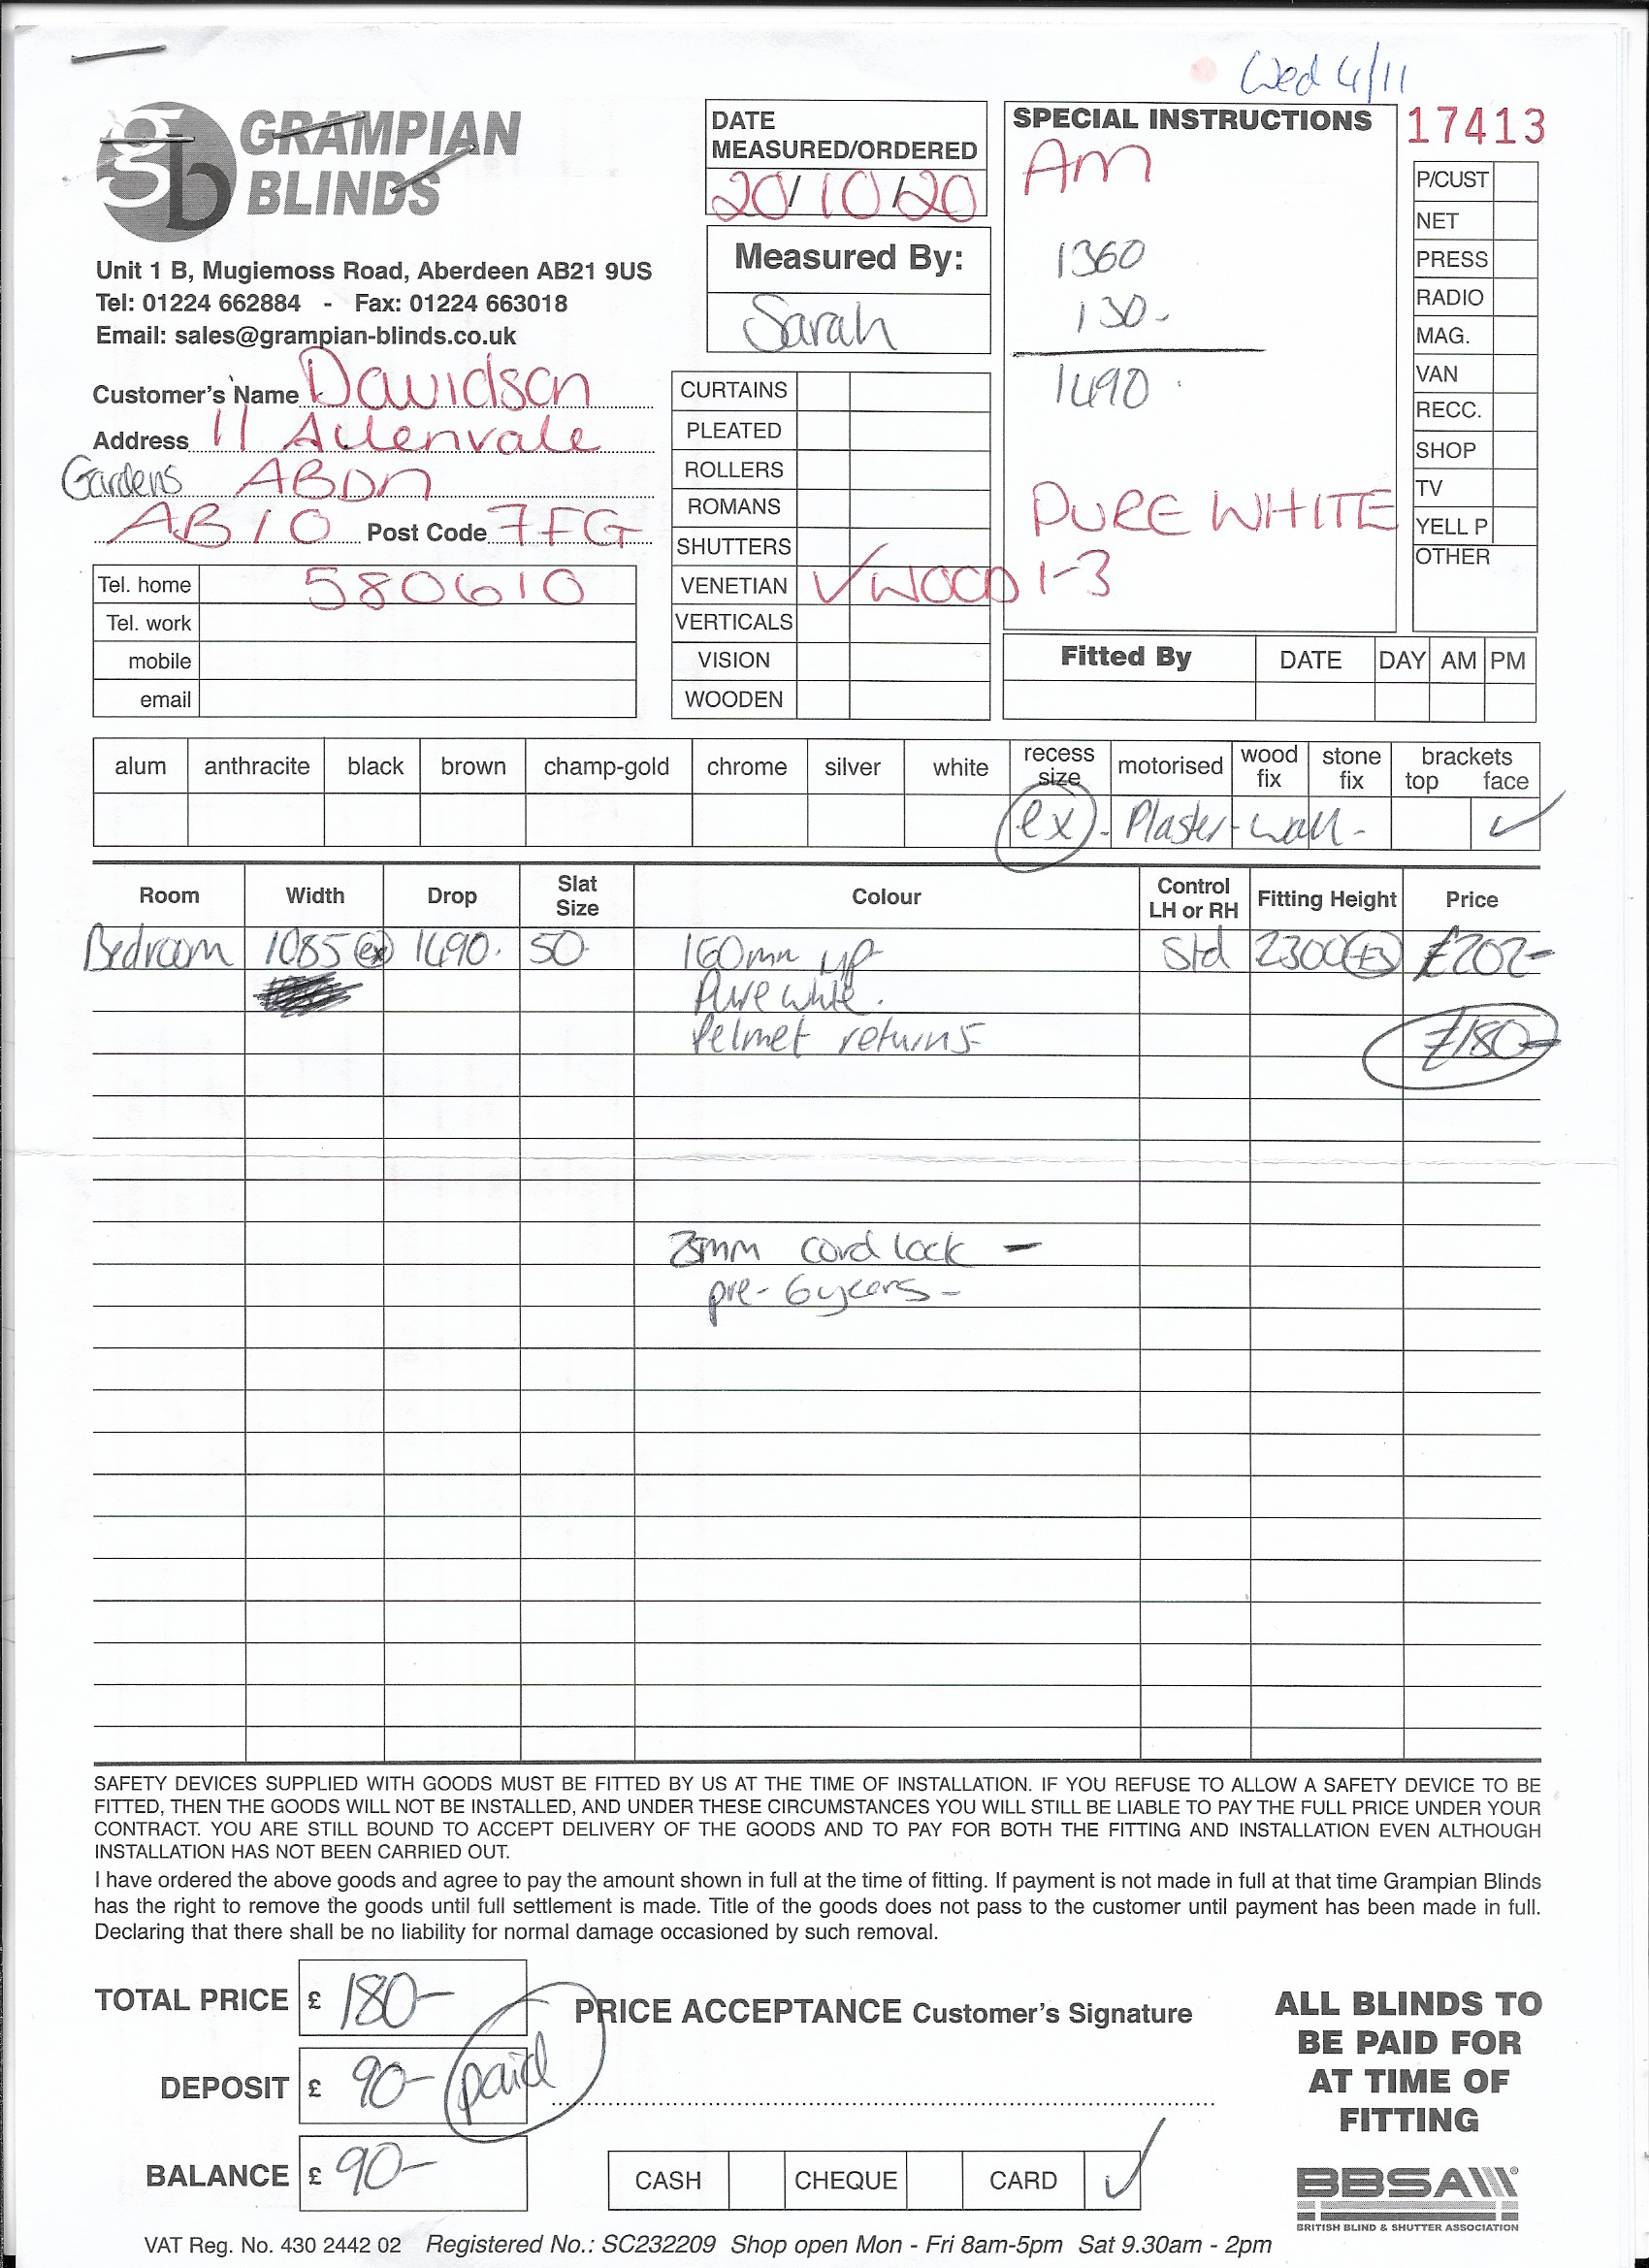 Wed 4/11
GRAMPIAN
BLINDS
Unit 1 B, Mugiemoss Road, Aberdeen AB21 9US
Tel: 01224 662884 - Fax: 01224 663018
Email: sales@grampian-blinds.co.uk
DATE
MEASURED/ORDERED
20/10/20
Measured By:
Sarah
SPECIAL INSTRUCTIONS
AM
1360
130-
1490
PURE WHITE
17413
P/CUST
NET
PRESS
RADIO
MAG.
VAN
RECC.
SHOP
TV
YELL P
OTHER
Customer's Name Davidson
Address 11 Allenvale
Gardens ABDN
AB10 Post Code 7FG
Tel. home 580610
Tel. work
mobile
email
CURTAINS
PLEATED
ROLLERS
ROMANS
SHUTTERS
VENETIAN ✓ WOOD 1-3
VERTICALS
VISION
WOODEN
Fitted By DATE DAY AM PM
alum anthracite black brown champ-gold chrome silver white recess size motorised wood fix stone fix brackets top face
ex - Plaster-wall- ✓
Room Width Drop Slat Size Colour Control LH or RH Fitting Height Price
Bedroom 1085 ex 1490. 50 160mm up Std 2300 £202-
Pure white.
Pelmet returns- £180-
25mm cord lock -
pre- 6 years -
SAFETY DEVICES SUPPLIED WITH GOODS MUST BE FITTED BY US AT THE TIME OF INSTALLATION. IF YOU REFUSE TO ALLOW A SAFETY DEVICE TO BE
FITTED, THEN THE GOODS WILL NOT BE INSTALLED, AND UNDER THESE CIRCUMSTANCES YOU WILL STILL BE LIABLE TO PAY THE FULL PRICE UNDER YOUR
CONTRACT. YOU ARE STILL BOUND TO ACCEPT DELIVERY OF THE GOODS AND TO PAY FOR BOTH THE FITTING AND INSTALLATION EVEN ALTHOUGH
INSTALLATION HAS NOT BEEN CARRIED OUT.
I have ordered the above goods and agree to pay the amount shown in full at the time of fitting. If payment is not made in full at that time Grampian Blinds
has the right to remove the goods until full settlement is made. Title of the goods does not pass to the customer until payment has been made in full.
Declaring that there shall be no liability for normal damage occasioned by such removal.
TOTAL PRICE £ 180-
DEPOSIT £ 90- paid
BALANCE £ 90-
PRICE ACCEPTANCE Customer's Signature
CASH CHEQUE CARD ✓
ALL BLINDS TO
BE PAID FOR
AT TIME OF
FITTING
BBSA
BRITISH BLIND & SHUTTER ASSOCIATION
VAT Reg. No. 430 2442 02 Registered No.: SC232209 Shop open Mon - Fri 8am-5pm Sat 9.30am - 2pm